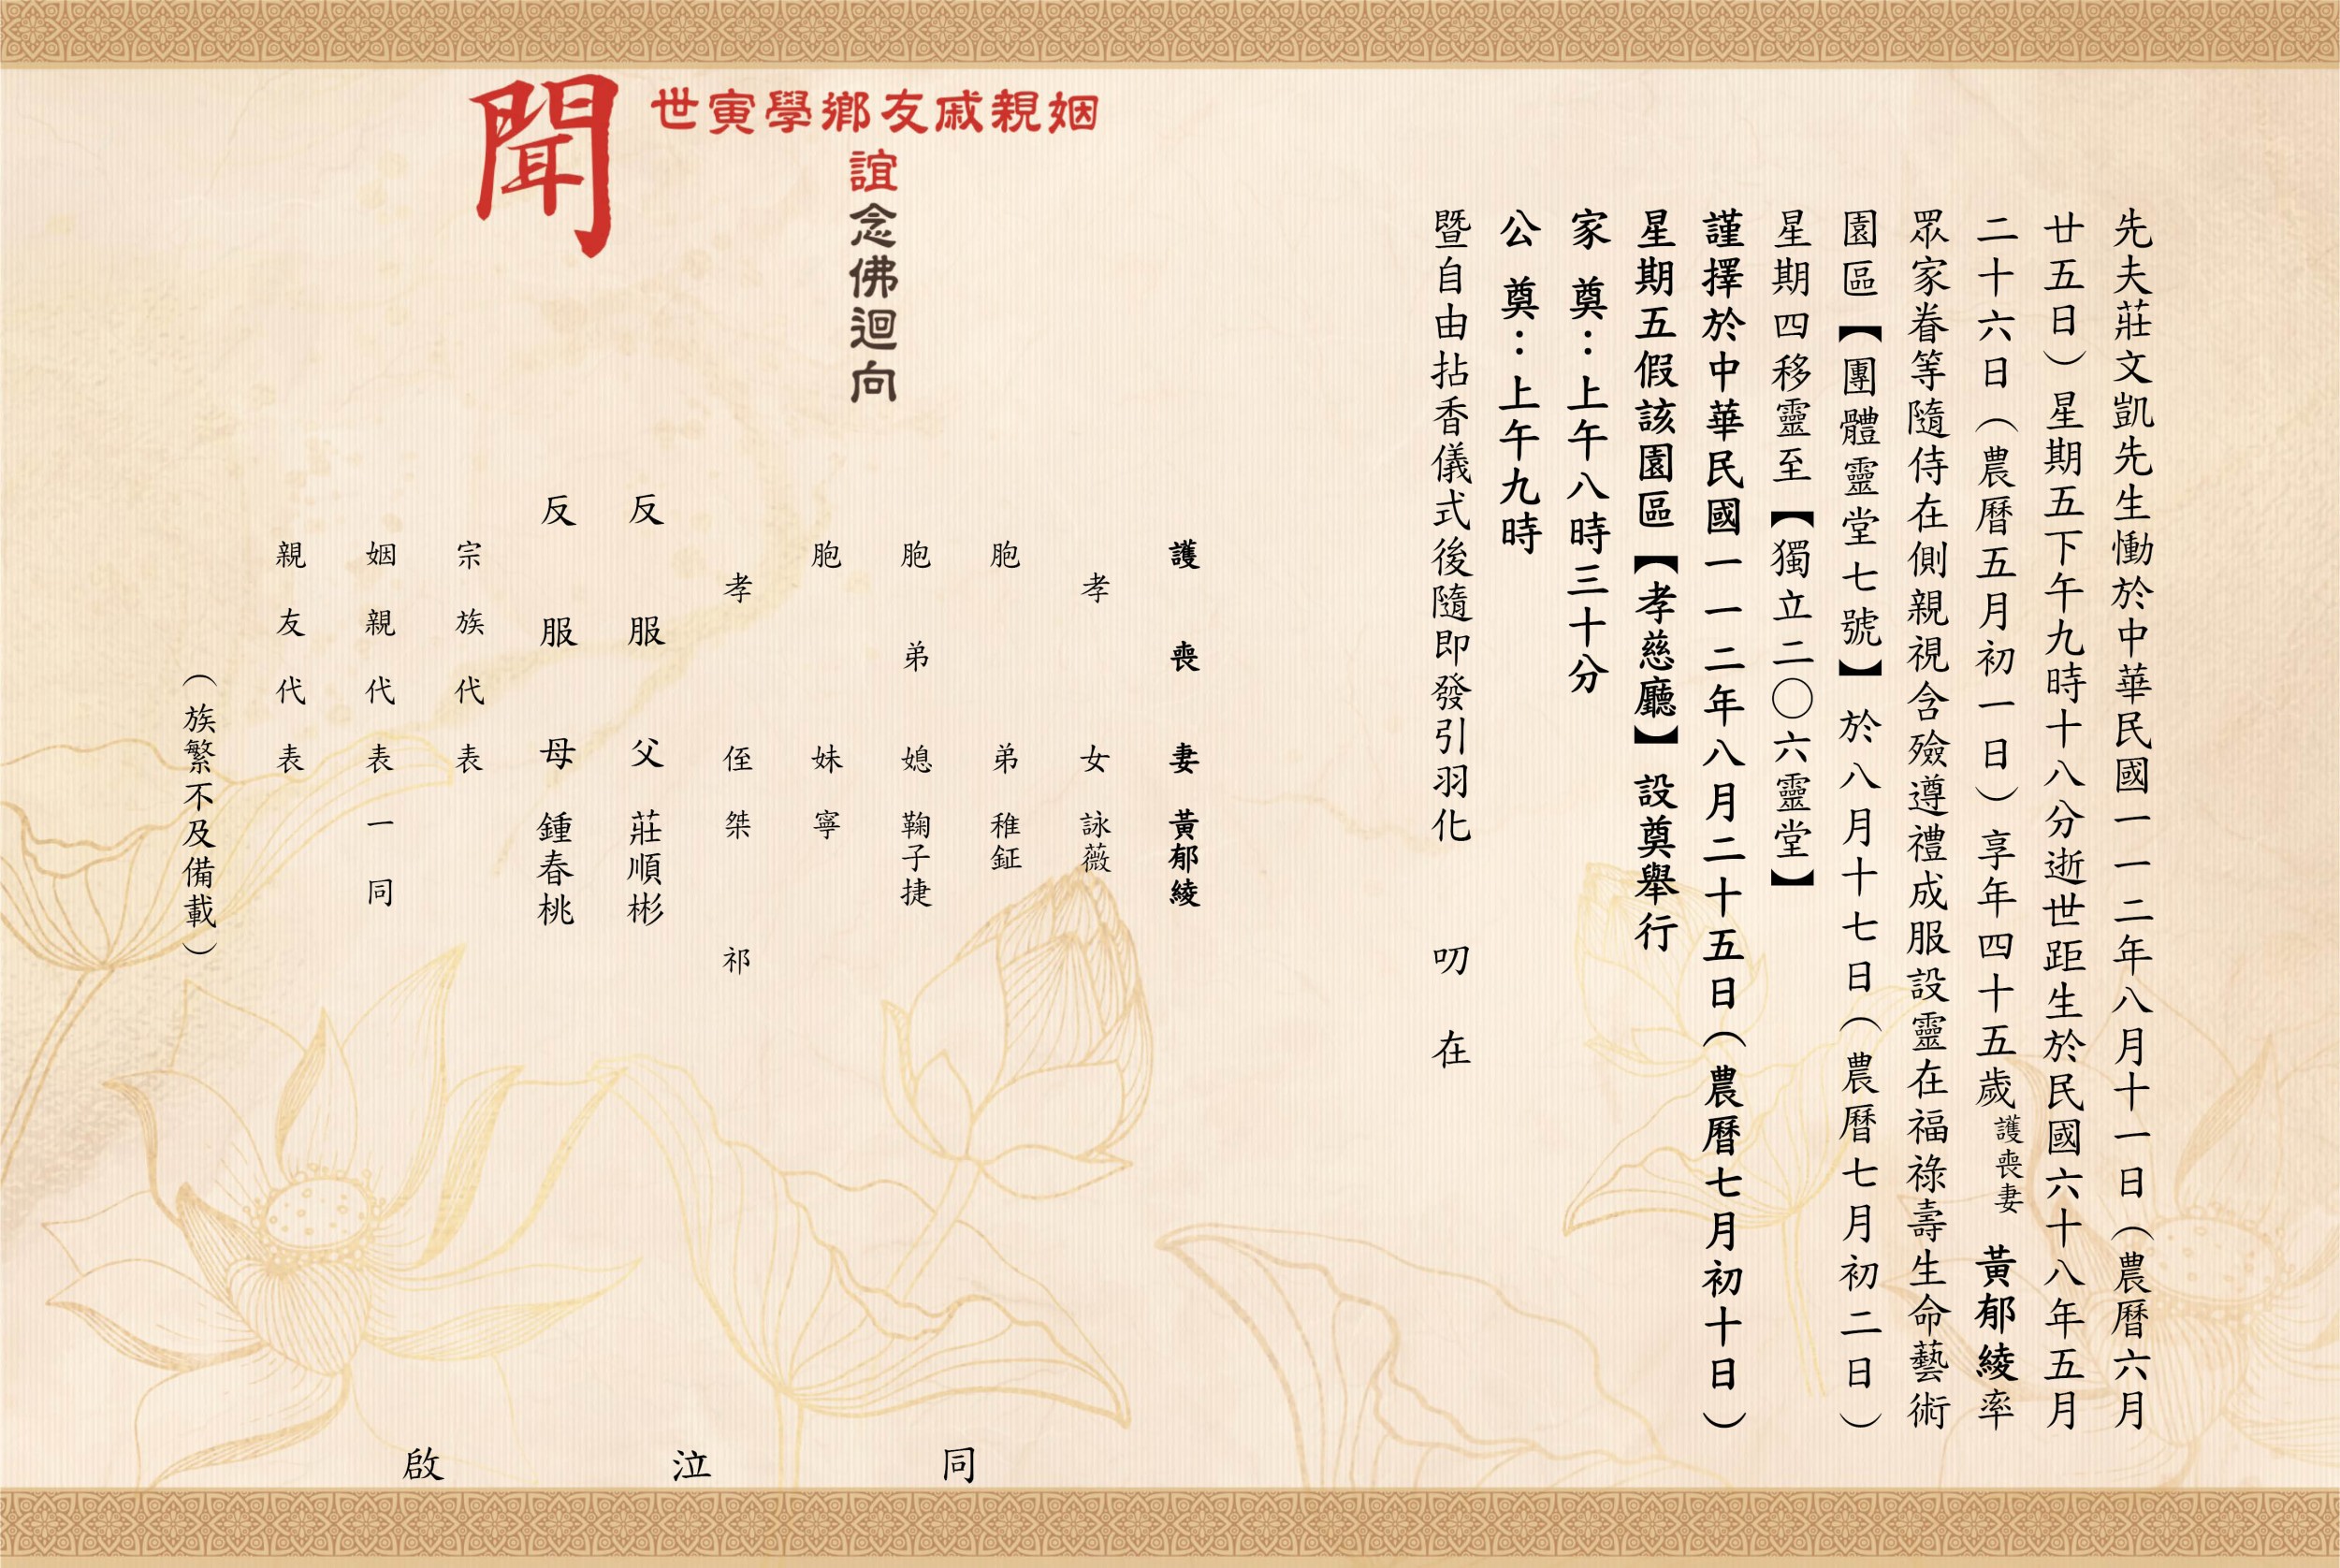 先夫莊文凱先生慟於中華民國一一二年八月十一日（農曆六月
廿五日）星期五下午九時十八分逝世距生於民國六十八年五月
二十六日（農曆五月初一日）享年四十五歲護喪妻 黃郁綾率
眾家眷等隨侍在側親視含殮遵禮成服設靈在福祿壽生命藝術
園區【團體靈堂七號】於八月十七日（農曆七月初二日）
星期四移靈至【獨立二〇六靈堂】
謹擇於中華民國一一二年八月二十五日（農曆七月初十日）
星期五假該園區【孝慈廳】設奠舉行
家 奠：上午八時三十分
公 奠：上午九時
暨自由拈香儀式後隨即發引羽化 叨 在
姻親戚友鄉學寅世
誼念佛迴向
聞
護喪妻 黃郁綾
孝女 詠薇
胞弟 稚鉦
胞弟媳 鞠子捷
胞妹 寧
孝侄 桀 祁
反服父 莊順彬
反服母 鍾春桃
宗族代表
姻親代表一同
親友代表
（族繁不及備載）
同泣啟